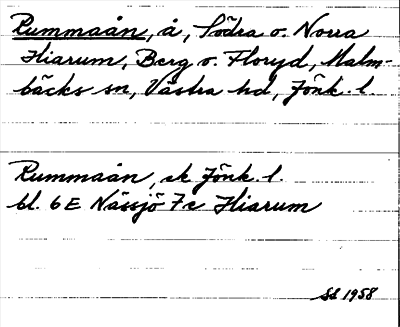 Rummaån, å, Södra o. Norra
Hiarum, Berg o. Floryd, Malm-
bäcks sn, Västra hd, Jönk. l.
Rummaån, ek Jönk. l.
bl. 6E Nässjö 7c Hiarum
SS 1958